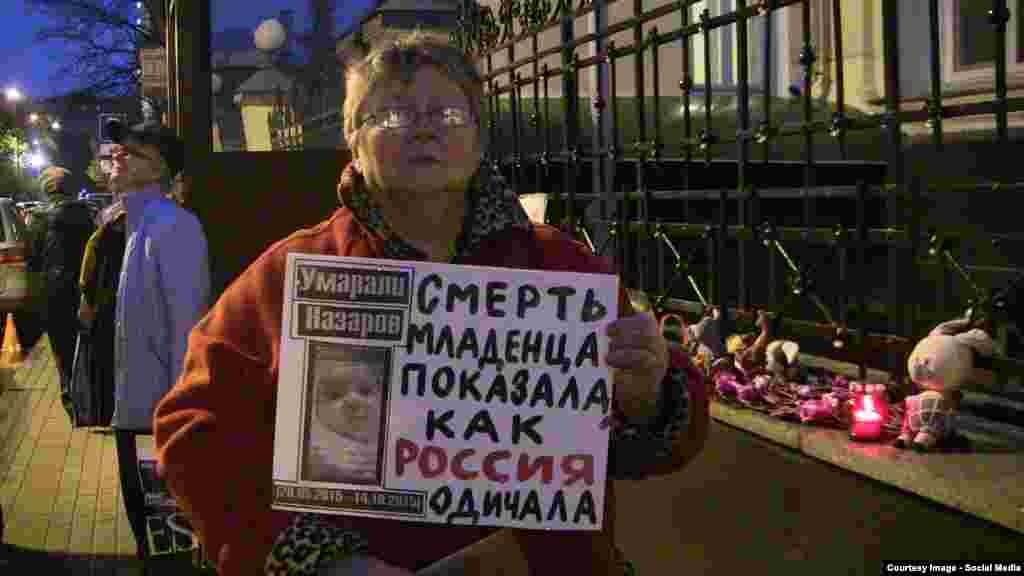 Умарали
Назаров
Смерть
младенца
показала,
как
Россия
одичала
Courtesy Image - Social Media